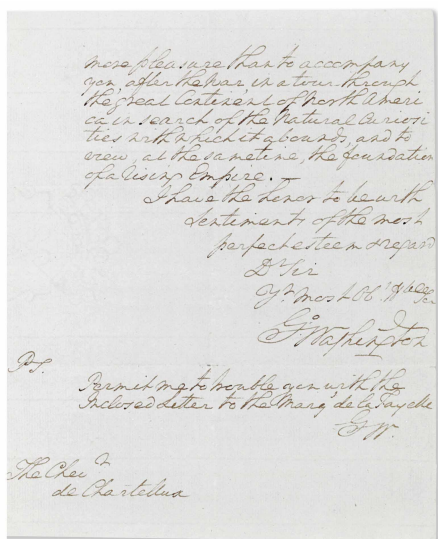 more pleasure than to accompany
you, after the War, in a tour through
the great Continent of North Ameri
ca in search of the Natural Curiosi
ties with which it abounds, and to
view, at the same time, the foundation
of a Rising Empire.
I have the honor to be with
Sentiments of the most
perfect esteem & regard
Dr Sir
Yr most Obt Hble Ser
Go Washington
P.S.
Permit me to trouble you with the
Inclosed Letter to the Marqs de la Fayette
G W.
The Chevr
de Chartellux